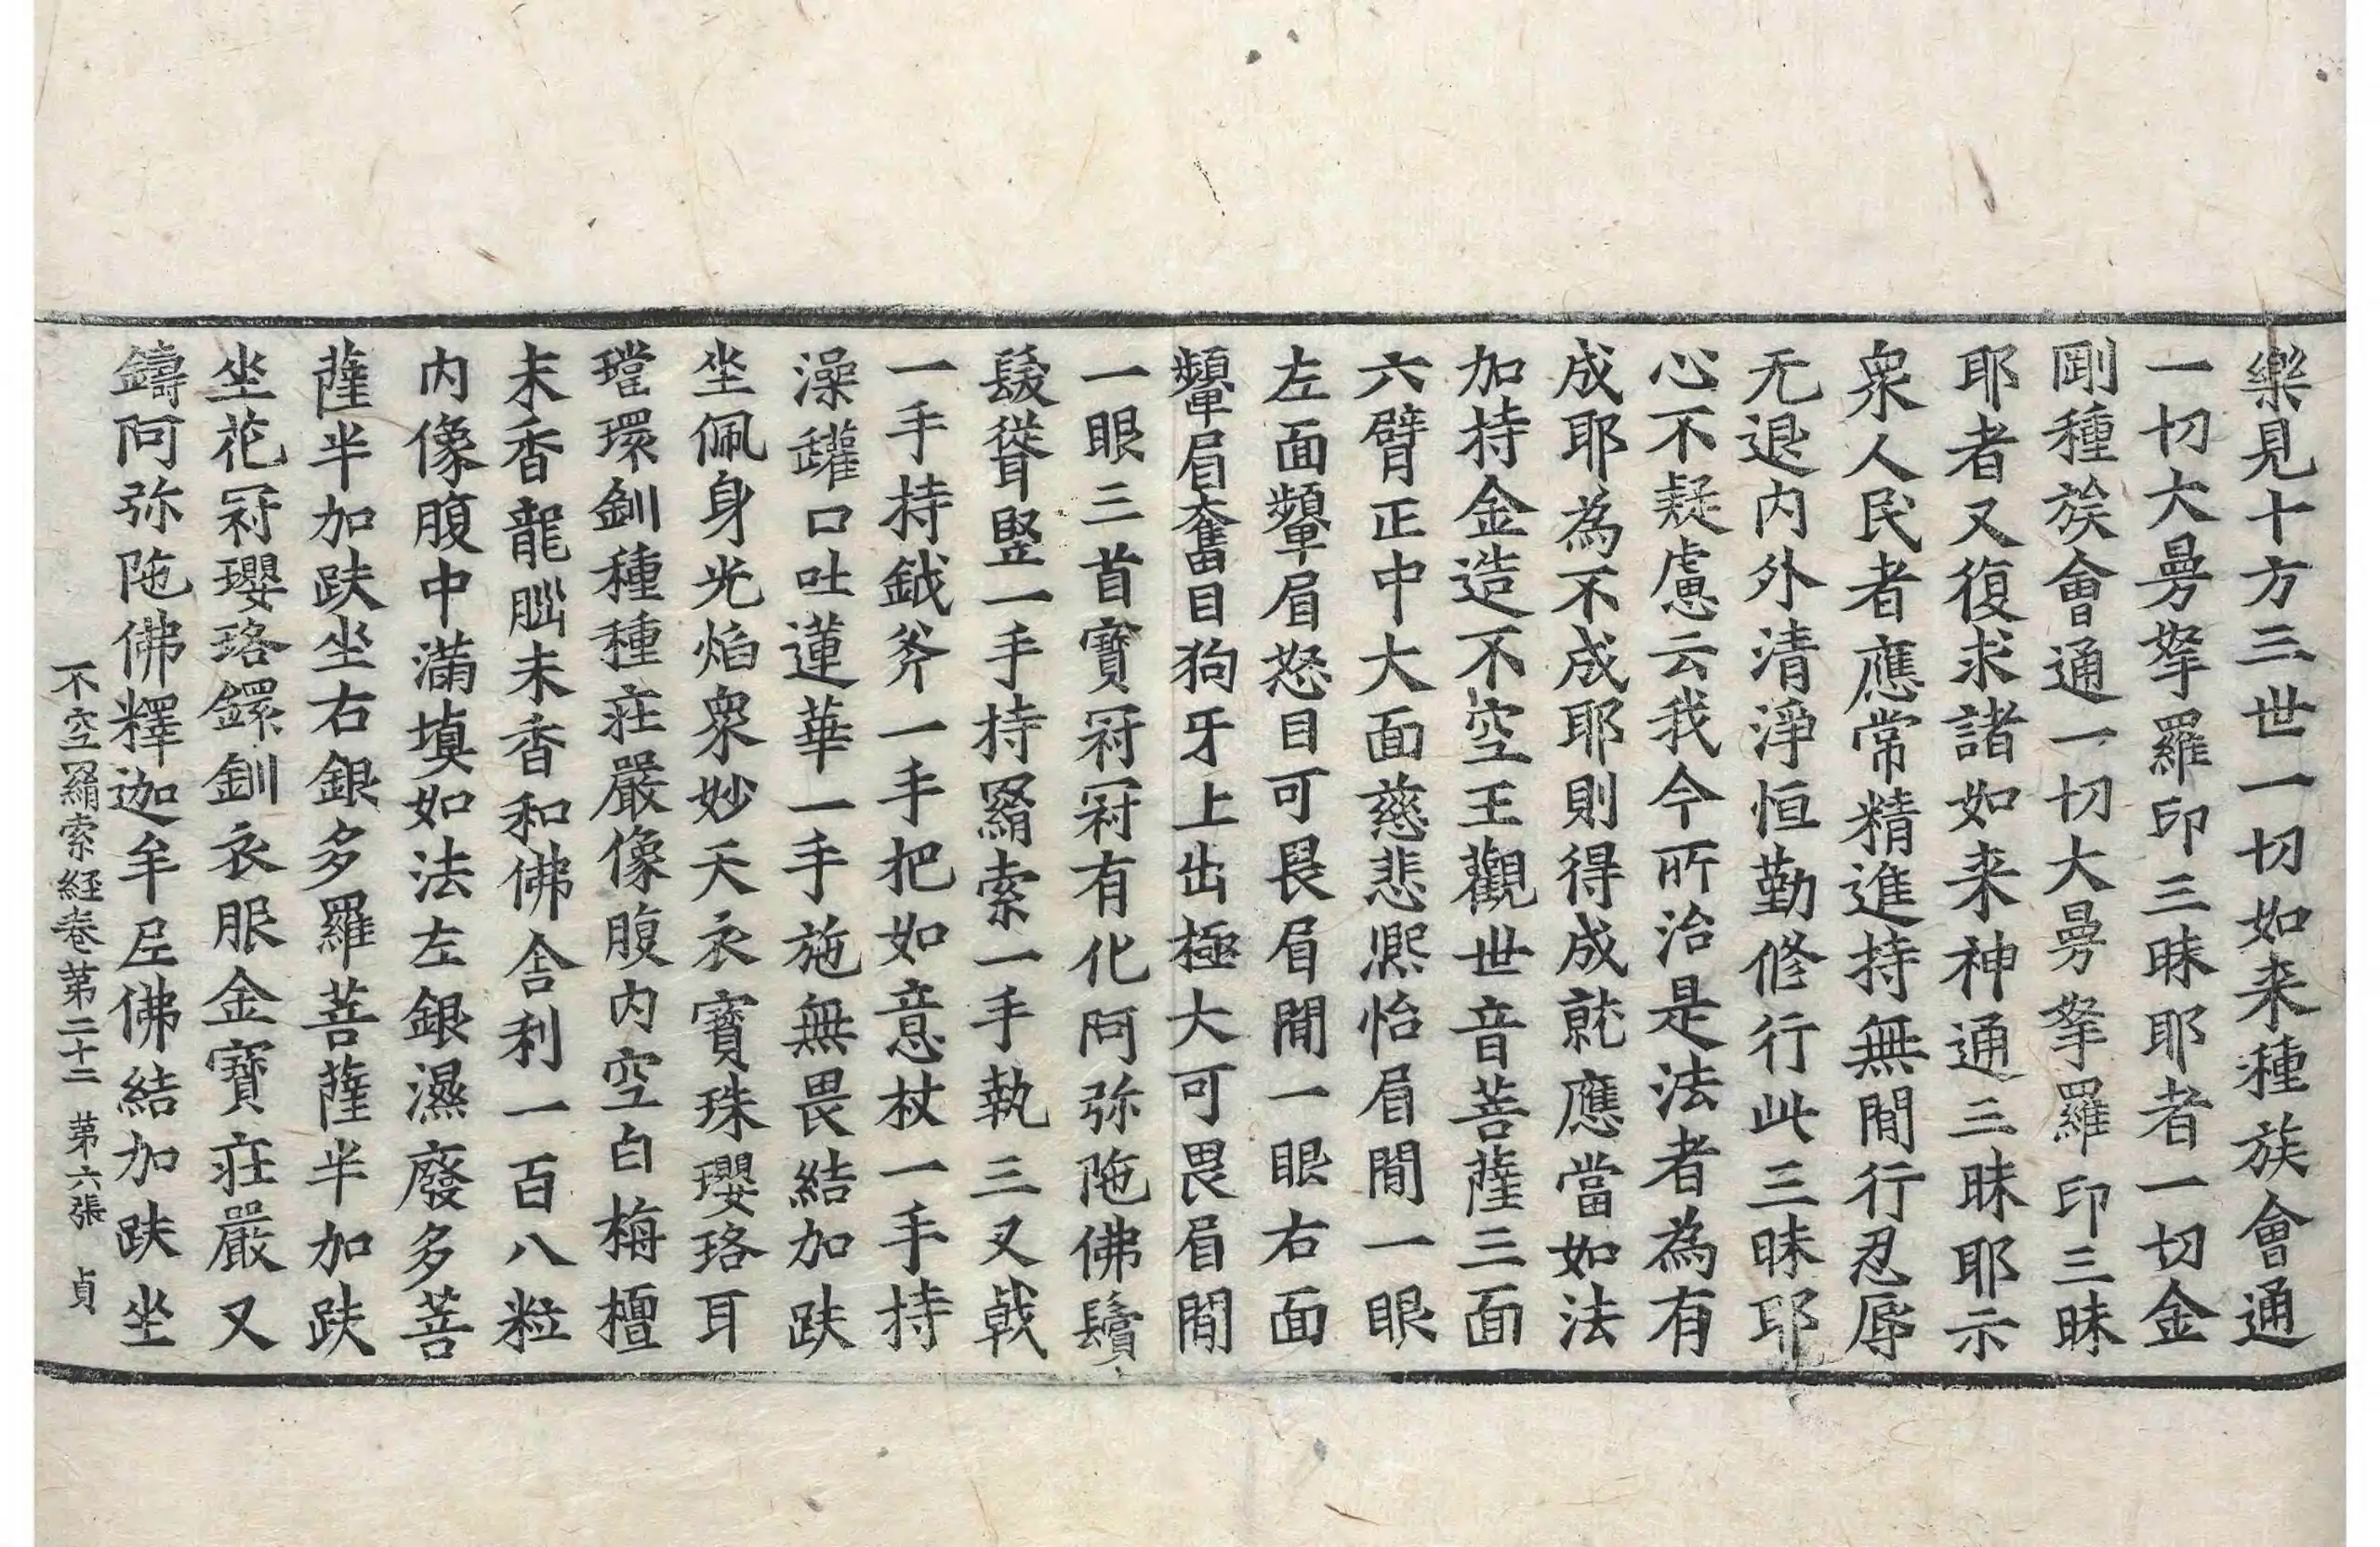 樂見十方三世一切如来種族會通
一切大曼拏羅印三昧耶者一切金
剛種族會通一切大曼拏羅印三昧
耶者又復求諸如来神通三昧耶示
衆人民者應常精進持無閒行忍辱
无退内外清淨恒勤修行此三昧耶
心不疑慮云我今所治是法者為有
成耶為不成耶則得成就應當如法
加持金造不空王觀世音菩薩三面
六臂正中大面慈悲熈怡眉閒一眼
左面顰眉怒目可畏眉閒一眼右面
顰眉奮目狗牙上出極大可畏眉閒
一眼三首寶冠冠有化阿弥陁佛鬚
髮聳竪一手持羂索一手執三叉戟
一手持鉞斧一手把如意杖一手持
澡罐口吐蓮華一手施無畏結加趺
坐佩身光焰衆妙天衣寶珠瓔珞耳
璫環釧種種莊嚴像腹内空白栴檀
末香龍腦末香和佛舎利一百八粒
内像腹中滿填如法左銀濕廢多菩
薩半加趺坐右銀多羅菩薩半加趺
坐花冠瓔珞鐶釧衣服金寶莊嚴又
鑄阿弥陁佛釋迦牟尼佛結加趺坐
不空羂索経卷第二十二 第六張 貞